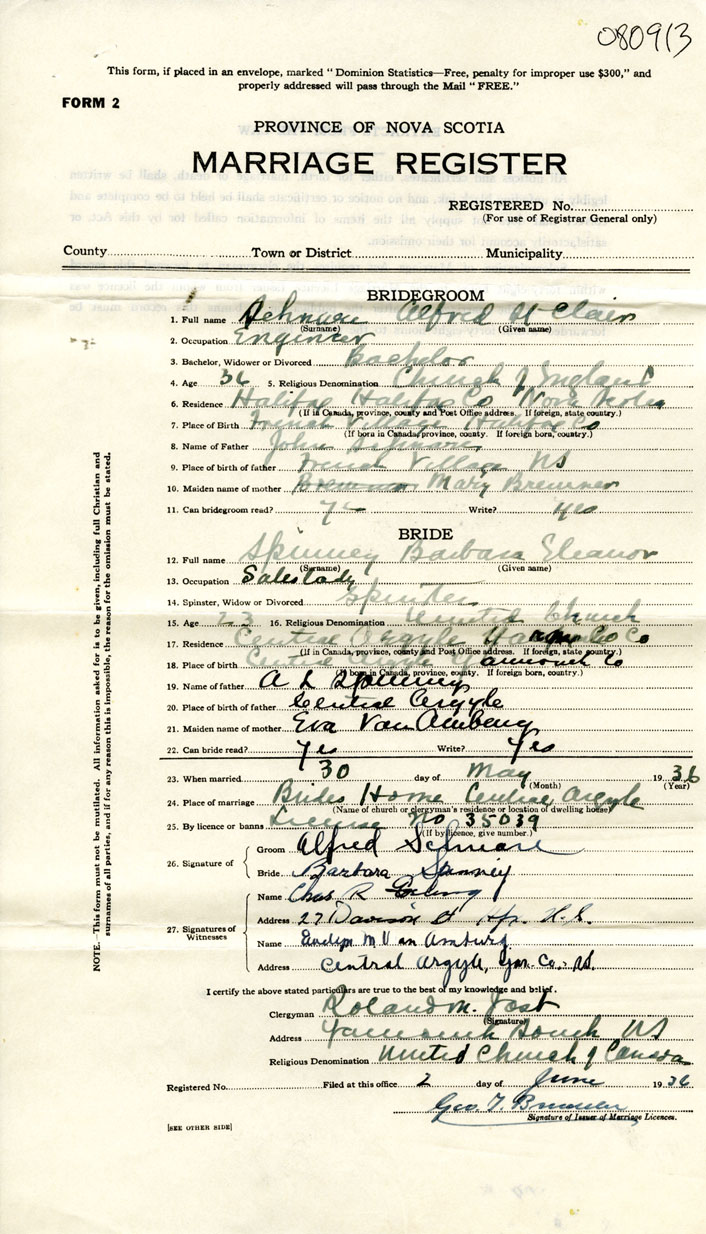 080913
This form, if placed in an envelope, marked "Dominion Statistics—Free, penalty for improper use $300," and
properly addressed will pass through the Mail "FREE."
FORM 2
PROVINCE OF NOVA SCOTIA
MARRIAGE REGISTER
REGISTERED No.
(For use of Registrar General only)
County Town or District Municipality
BRIDEGROOM
1. Full name Alfred St Clair
(Surname) (Given name)
2. Occupation Engineer
3. Bachelor, Widower or Divorced Bachelor
4. Age 36 5. Religious Denomination Church of England
6. Residence Halifax Halifax Co Nova Scotia
(If in Canada, province, county and Post Office address. If foreign, state country.)
7. Place of Birth French Village Halifax Co
(If born in Canada, province, county. If foreign born, country.)
8. Name of Father John
9. Place of birth of father French Village NS
10. Maiden name of mother Mary Bremner
11. Can bridegroom read? Yes Write? Yes
BRIDE
12. Full name Spinney Barbara Eleanor
(Surname) (Given name)
13. Occupation Saleslady
14. Spinster, Widow or Divorced Spinster
15. Age 23 16. Religious Denomination United Church
17. Residence Central Argyle Co
(If in Canada, province, county and Post Office address. If foreign, state country.)
18. Place of birth Central Argyle Yarmouth Co
(If born in Canada, province, county. If foreign born, country.)
19. Name of father A L Spinney
20. Place of birth of father Central Argyle
21. Maiden name of mother Eva Van Amberg
22. Can bride read? Yes Write? Yes
23. When married 30 day of May 1936
(Month) (Year)
24. Place of marriage Brides Home Central Argyle
(Name of church or clergyman's residence or location of dwelling house)
25. By licence or banns License No 35039
(If by licence, give number.)
26. Signature of
Groom Alfred
Bride Barbara Spinney
27. Signatures of Witnesses
Name Chas R
Address 27 Davison St Hfx. N.S.
Name Evelyn M Van Amburg
Address Central Argyle, Yar. Co., N.S.
I certify the above stated particulars are true to the best of my knowledge and belief.
Clergyman Roland M. Yost
(Signature)
Address Yarmouth South NS
Religious Denomination United Church of Canada
Registered No. Filed at this office 2 day of June 1936
Geo T
Signature of Issuer of Marriage Licences.
[SEE OTHER SIDE]
NOTE.—This form must not be mutilated. All information asked for is to be given, including full Christian and
surnames of all parties, and if for any reason this is impossible, the reason for the omission must be stated.